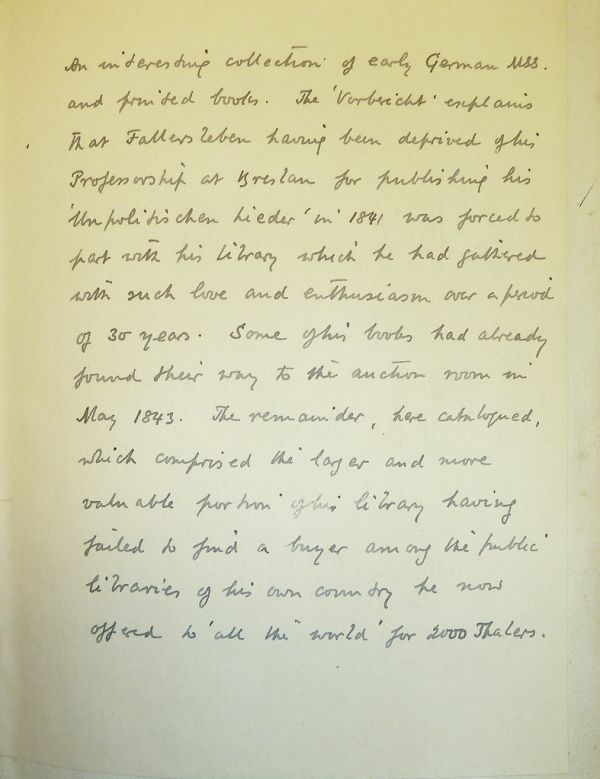 An interesting collection of early German MSS.
and printed books. The 'Vorbericht' explains
that Fallersleben having been deprived of his
Professorship at Breslau for publishing his
'Unpolitischen Lieder' in 1841 was forced to
part with his library which he had gathered
with such love and enthusiasm over a period
of 30 years. Some of his books had already
found their way to the auction room in
May 1843. The remainder, here catalogued,
which comprised the larger and more
valuable portion of his library having
failed to find a buyer among the public
libraries of his own country he now
offered to 'all the world' for 2000 Thalers.